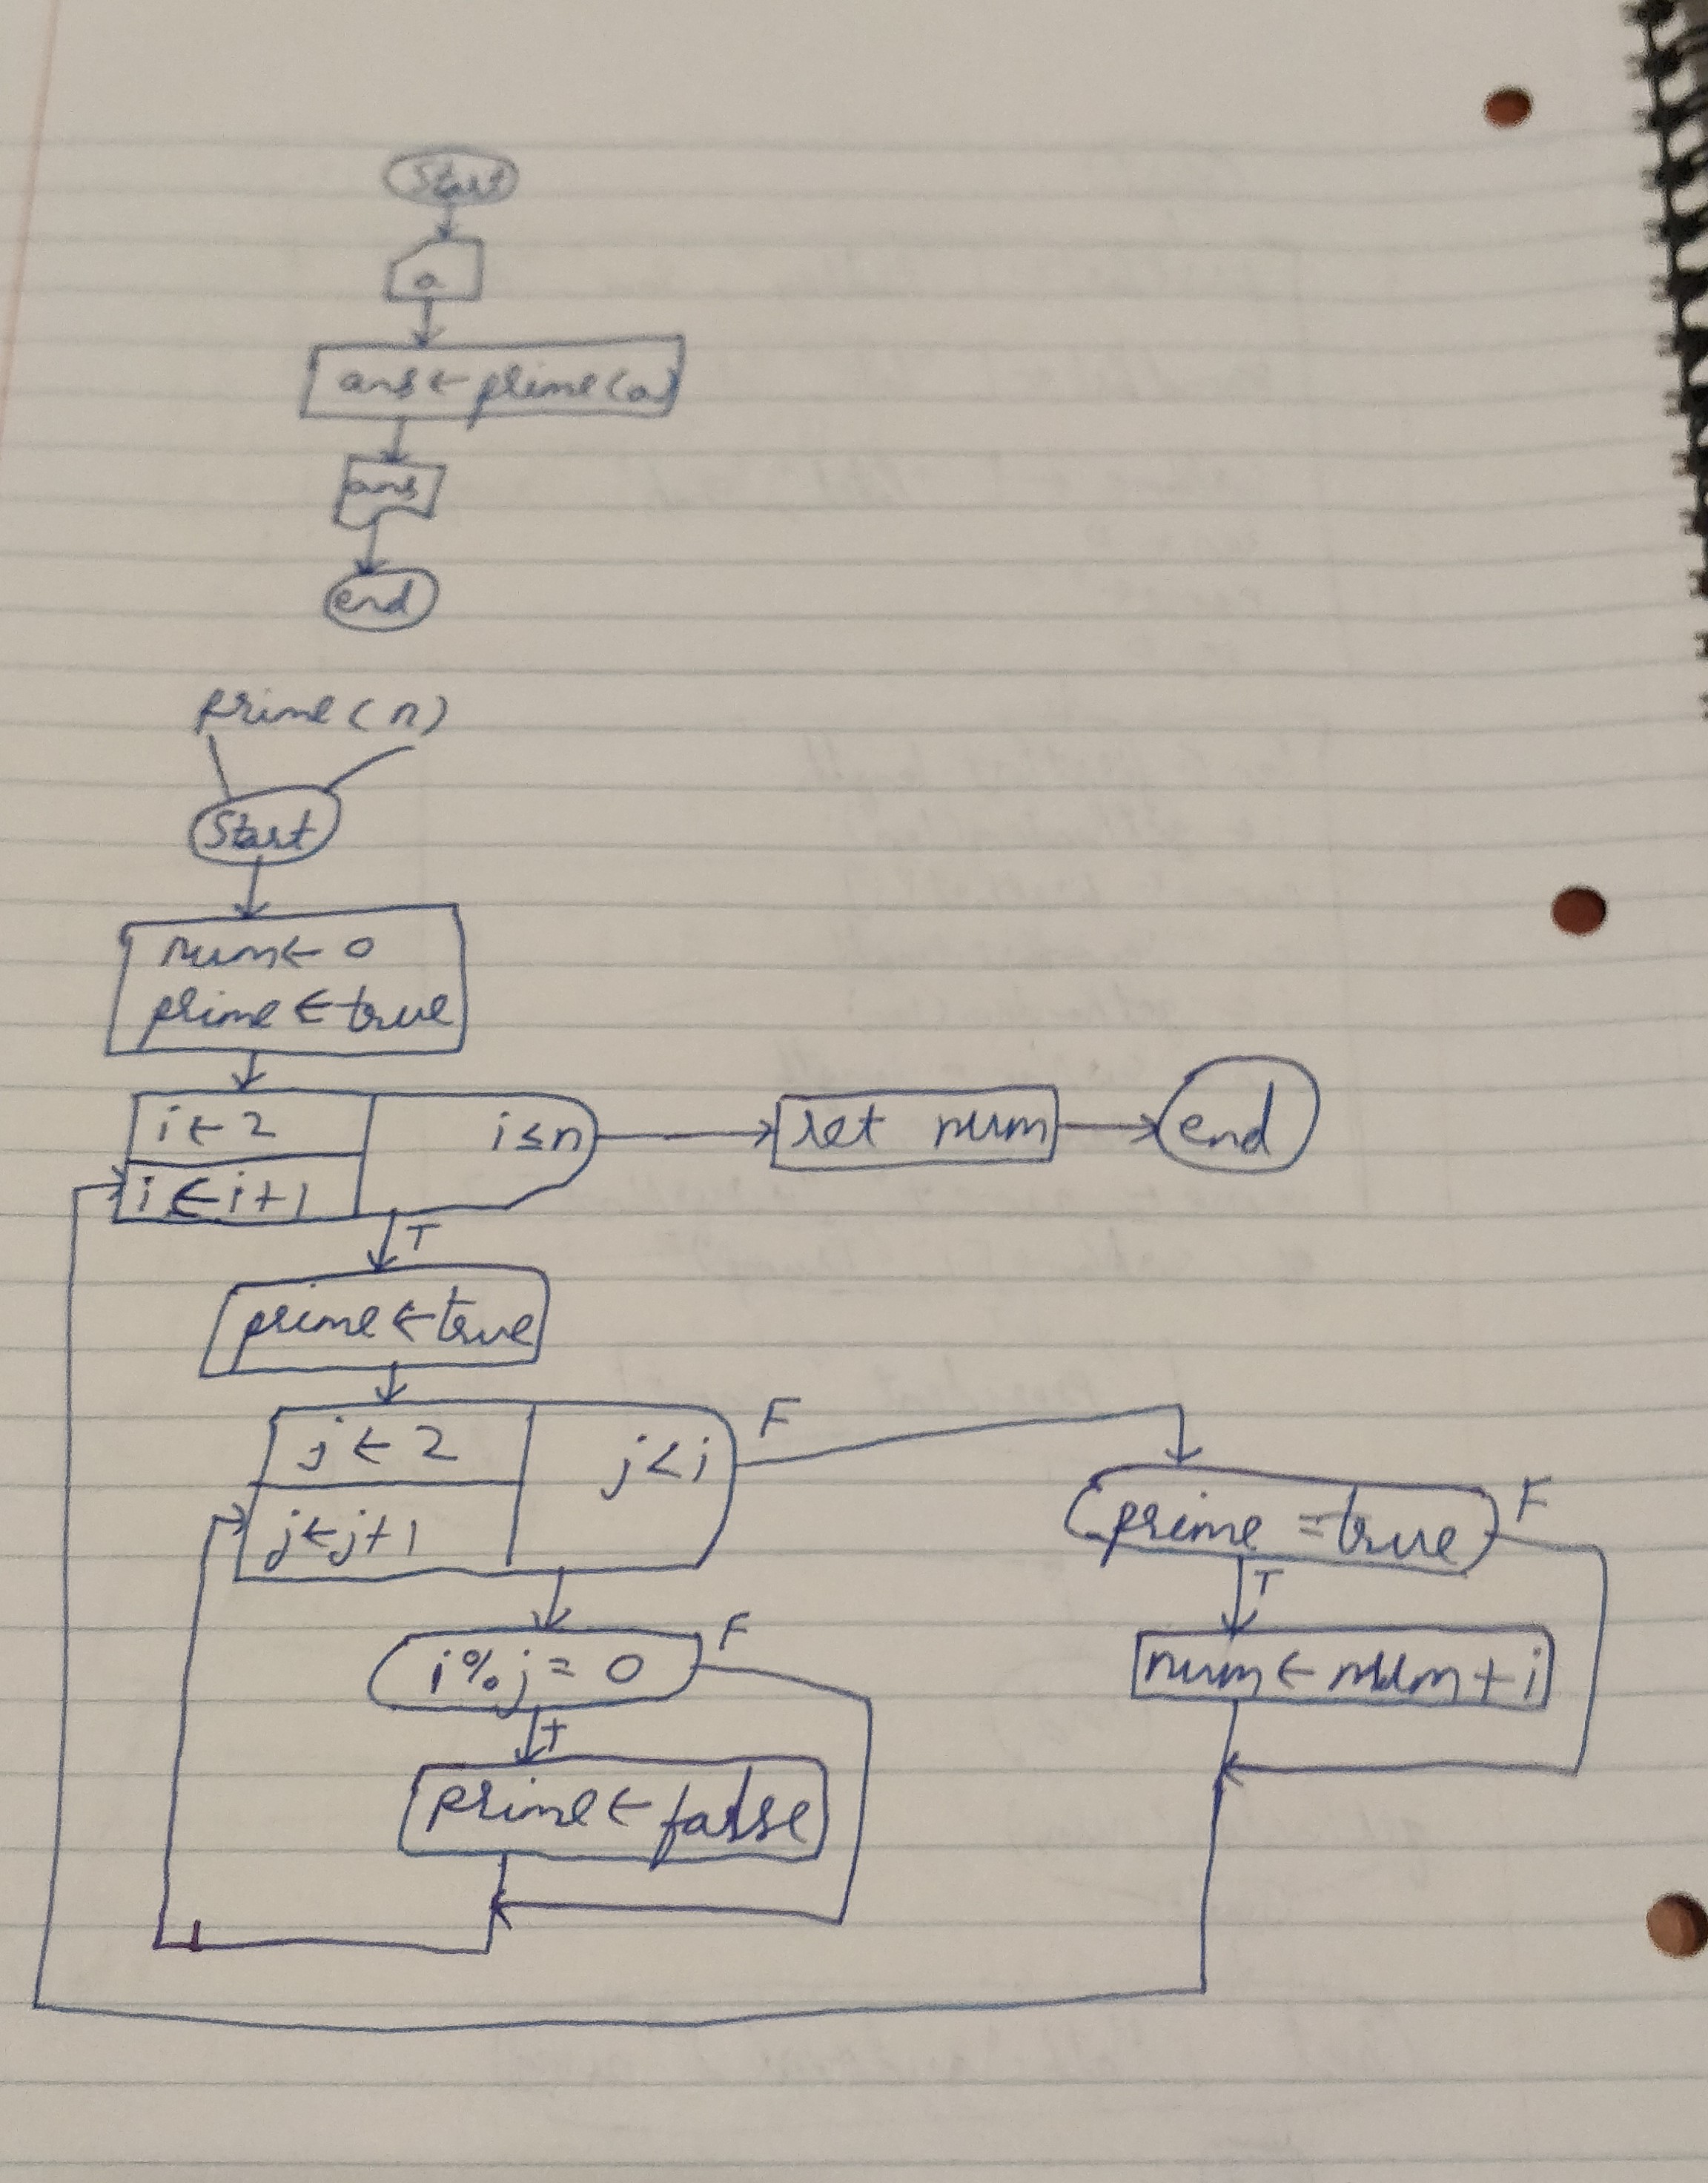 Start
a
ans ← prime(a)
ans
end
prime(n)
Start
num ← 0
prime ← true
i ← 2
i ≤ n
ret num
end
i ← i+1
T
prime ← true
j ← 2
j < i
F
j ← j+1
prime = true
F
T
i % j = 0
F
num ← num + i
T
prime ← false